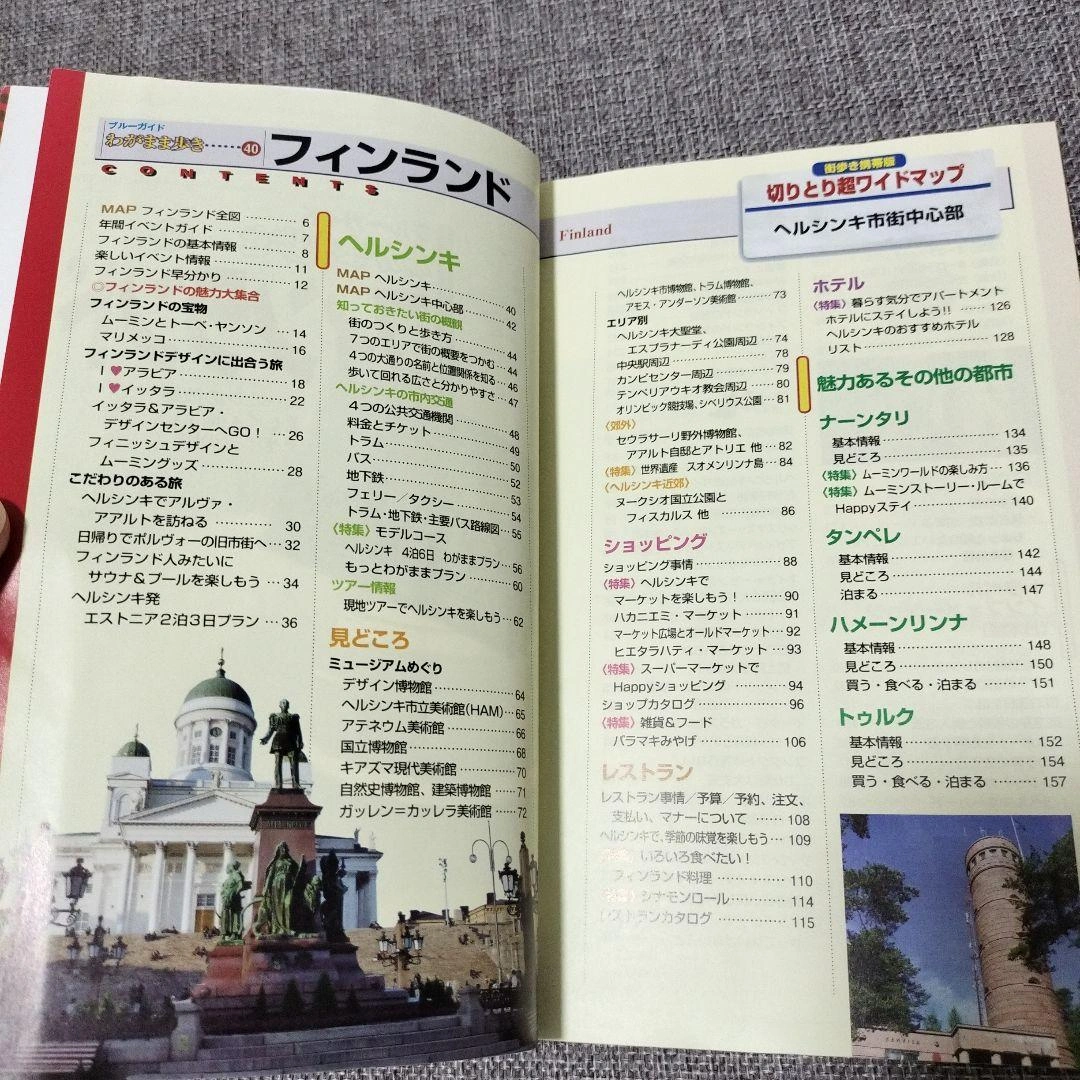 ブルーガイド
わがまま歩き……40
フィンランド
CONTENTS
MAP フィンランド全図……6
年間イベントガイド……7
フィンランドの基本情報……8
楽しいイベント情報……11
フィンランド早分かり……12
◎フィンランドの魅力大集合
フィンランドの宝物
ムーミンとトーベ・ヤンソン…14
マリメッコ……16
フィンランドデザインに出合う旅
I♥アラビア……18
I♥イッタラ……22
イッタラ&アラビア・
デザインセンターへGO！…26
フィニッシュデザインと
ムーミングッズ……28
こだわりのある旅
ヘルシンキでアルヴァ・
アアルトを訪ねる……30
日帰りでポルヴォーの旧市街へ…32
フィンランド人みたいに
サウナ&プールを楽しもう…34
ヘルシンキ発
エストニア2泊3日プラン…36
ヘルシンキ
MAP ヘルシンキ……40
MAP ヘルシンキ中心部……42
知っておきたい街の概観
街のつくりと歩き方……44
7つのエリアで街の概要をつかむ…44
4つの大通りの名前と位置関係を知る…46
歩いて回れる広さと分かりやすさ…47
ヘルシンキの市内交通
4つの公共交通機関……48
料金とチケット……49
トラム……50
バス……50
地下鉄……52
フェリー／タクシー……54
トラム・地下鉄・主要バス路線図…55
〈特集〉モデルコース
ヘルシンキ 4泊6日 わがままプラン…56
もっとわがままプラン……60
ツアー情報
現地ツアーでヘルシンキを楽しもう…62
見どころ
ミュージアムめぐり
デザイン博物館……64
ヘルシンキ市立美術館（HAM）…65
アテネウム美術館……66
国立博物館……68
キアズマ現代美術館……70
自然史博物館、建築博物館……71
ガッレン＝カッレラ美術館…72
Finland
街歩き携帯版
切りとり超ワイドマップ
ヘルシンキ市街中心部
ヘルシンキ市博物館、トラム博物館、
アモス・アンダーソン美術館……73
エリア別
ヘルシンキ大聖堂、
エスプラナーディ公園周辺…74
中央駅周辺……78
カンピセンター周辺……79
テンペリアウキオ教会周辺……80
オリンピック競技場、シベリウス公園…81
〈郊外〉
セウラサーリ野外博物館、
アアルト自邸とアトリエ 他…82
〈特集〉世界遺産 スオメンリンナ島…84
〈ヘルシンキ近郊〉
ヌークシオ国立公園と
フィスカルス 他……86
ショッピング
ショッピング事情……88
〈特集〉ヘルシンキで
マーケットを楽しもう！……90
ハカニエミ・マーケット……91
マーケット広場とオールドマーケット…92
ヒエタラハティ・マーケット…93
〈特集〉スーパーマーケットで
Happyショッピング……94
ショップカタログ……96
〈特集〉雑貨&フード
バラマキみやげ……106
レストラン
レストラン事情／予算／予約、注文、
支払い、マナーについて……108
ヘルシンキで、季節の味覚を楽しもう…109
いろいろ食べたい！
フィンランド料理……110
シナモンロール……114
レストランカタログ……115
ホテル
〈特集〉暮らす気分でアパートメント
ホテルにステイしよう!!……126
ヘルシンキのおすすめホテル
リスト……128
魅力あるその他の都市
ナーンタリ
基本情報……134
見どころ……135
〈特集〉ムーミンワールドの楽しみ方…136
〈特集〉ムーミンストーリー・ルームで
Happyステイ……140
タンペレ
基本情報……142
見どころ……144
泊まる……147
ハメーンリンナ
基本情報……148
見どころ……150
買う・食べる・泊まる……151
トゥルク
基本情報……152
見どころ……154
買う・食べる・泊まる……157